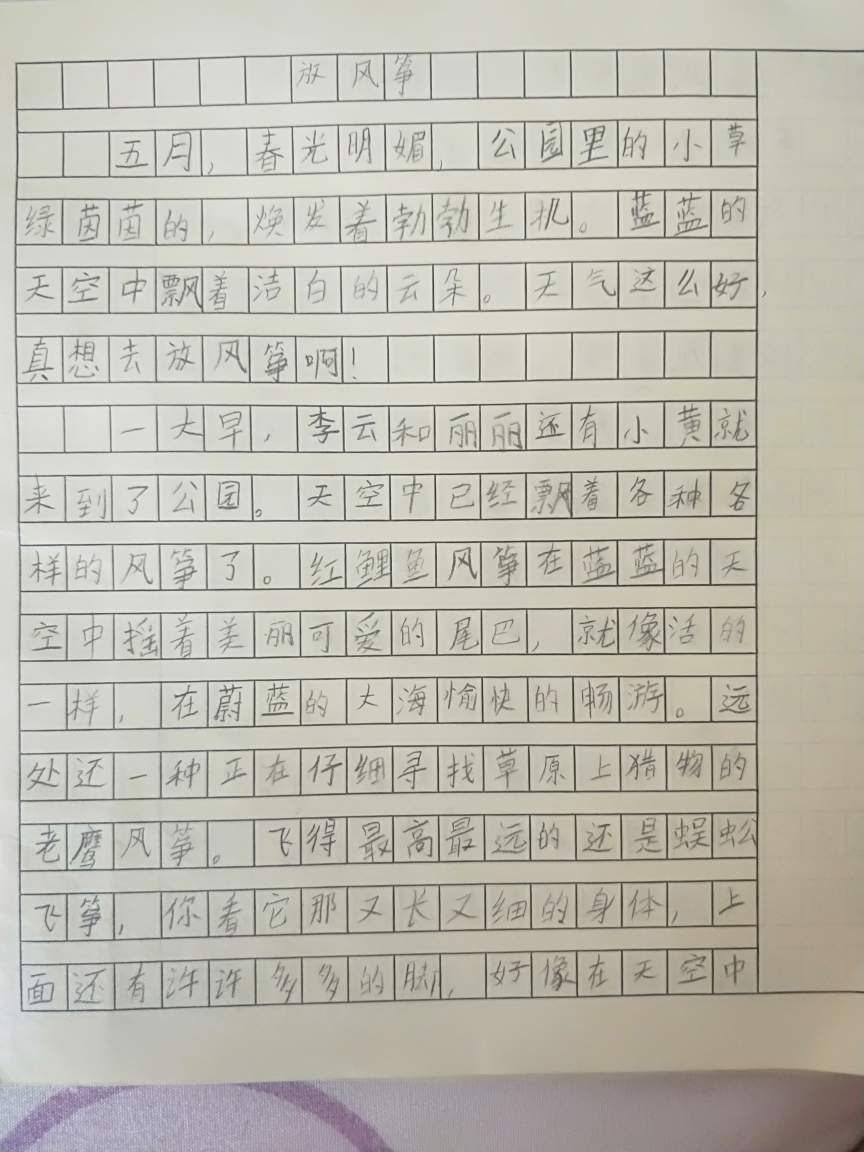 放风筝
五月，春光明媚，公园里的小草
绿茵茵的，焕发着勃勃生机。蓝蓝的
天空中飘着洁白的云朵。天气这么好，
真想去放风筝啊！
一大早，李云和丽丽还有小黄就
来到了公园。天空中已经飘着各种各
样的风筝了。红鲤鱼风筝在蓝蓝的天
空中摇着美丽可爱的尾巴，就像活的
一样，在蔚蓝的大海愉快的畅游。远
处还一种正在仔细寻找草原上猎物的
老鹰风筝。飞得最高最远的还是蜈蚣
飞筝，你看它那又长又细的身体，上
面还有许许多多的脚，好像在天空中